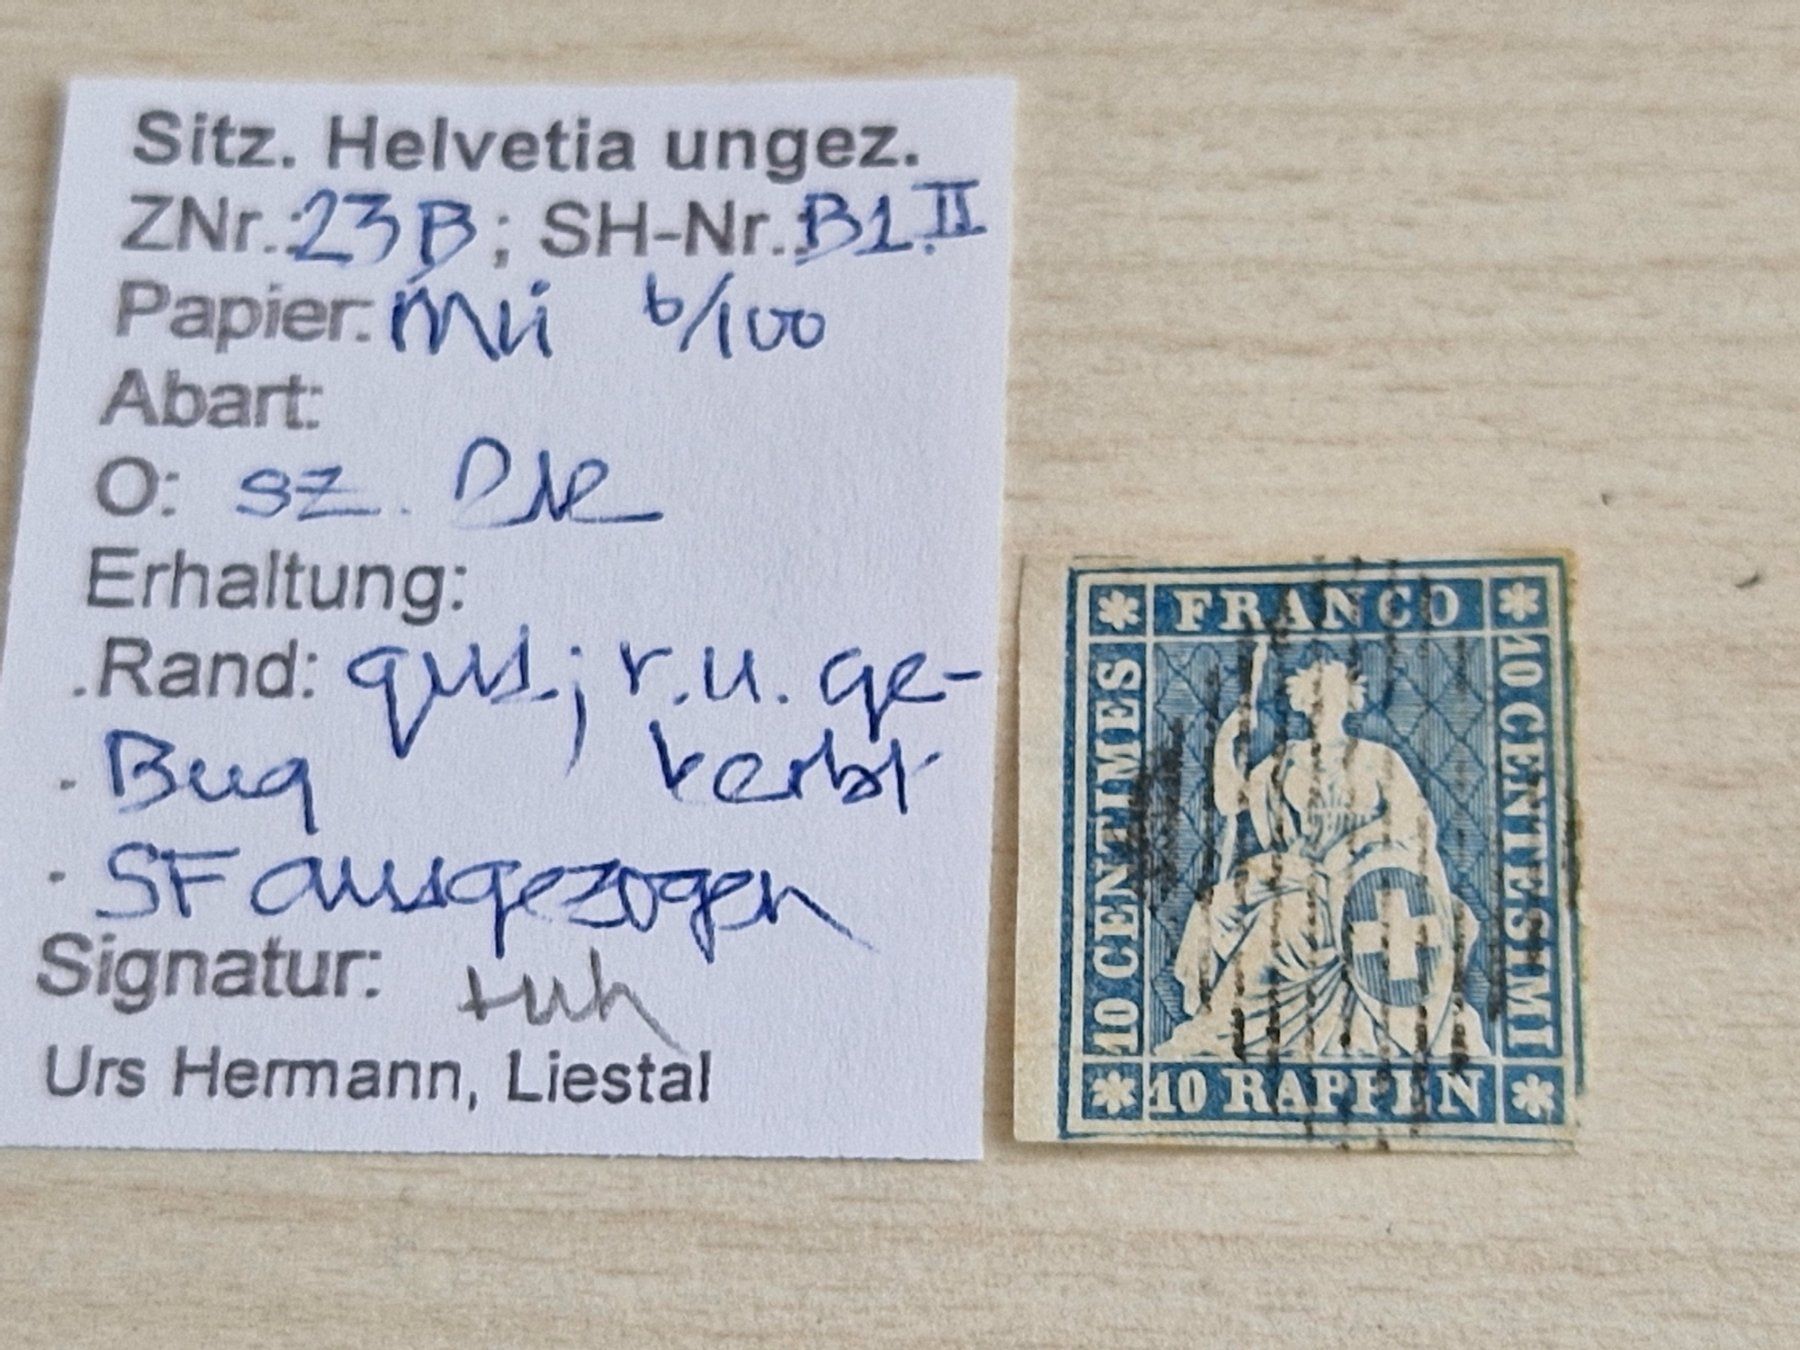 Sitz. Helvetia ungez.
ZNr.: 23B; SH-Nr.: B1.II
Papier: Mü b/100
Abart:
O: sz.
Erhaltung:
. Rand: qus.; r. u. ge-
. Bug kerbt
. SF ausgezogen
Signatur:
Urs Hermann, Liestal
FRANCO
10 CENTIMES
10 CENTESIMI
10 RAPPEN